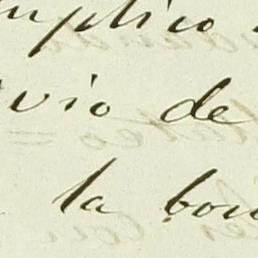 mplico
vio de
la bon